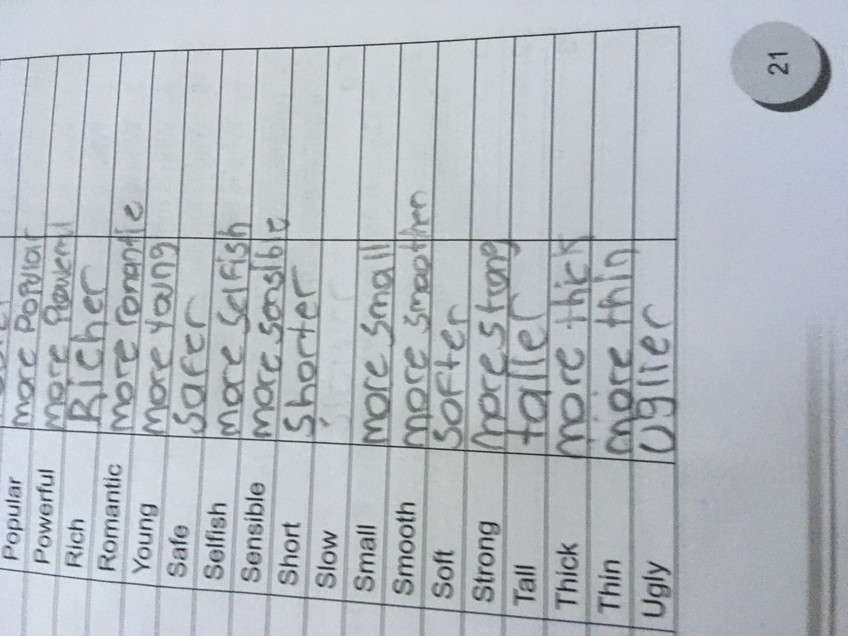 Popular more Popular
Powerful more Powerful
Rich Richer
Romantic more romantic
Young more young
Safe safer
Selfish more selfish
Sensible more sensible
Short shorter
Slow
Small more small
Smooth more smoother
Soft softer
Strong more strong
Tall taller
Thick more thick
Thin more thin
Ugly uglier
21